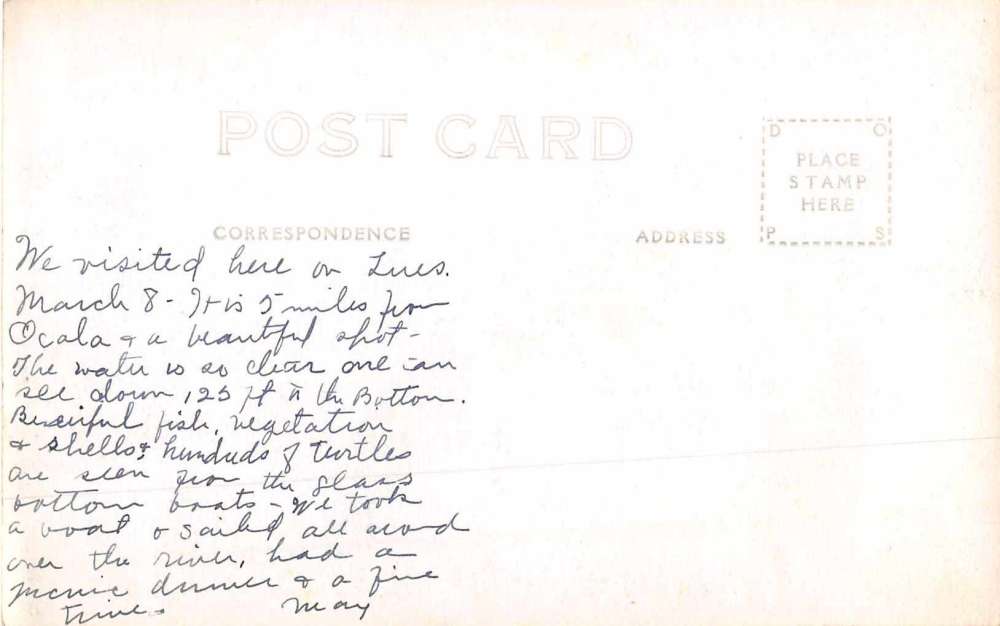 POST CARD
D O
PLACE
STAMP
HERE
P S
CORRESPONDENCE
ADDRESS
We visited here on Tues.
March 8 - It is 5 miles from
Ocala & a beautiful spot -
The water is so clear one can
see down 125 ft to the Bottom.
Beautiful fish, vegetation
& shells & hundreds of turtles
are seen from the glass
bottom boats - We took
a boat & sailed all
over the river, had a
picnic dinner & a fine
time. May